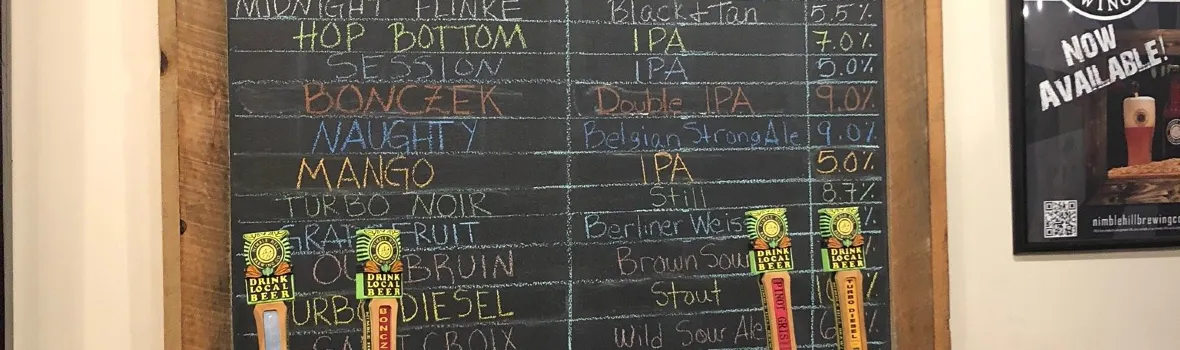 MIDNIGHT FLINKE Black & Tan 5.5%
HOP BOTTOM IPA 7.0%
SESSION IPA 5.0%
BONCZEK Double IPA 9.0%
NAUGHTY Belgian Strong Ale 9.0%
MANGO IPA 5.0%
TURBO NOIR Still 8.7%
Berliner Weis %
BRUIN Brown Sou
URBO DIESEL Stout %
CROIX Wild Sour Ale %
DRINK LOCAL BEER
DRINK LOCAL BEER
BONCZ
DRINK LOCAL BEER
PINOT GRIS
DRINK LOCAL BEER
TURBO DIESEL
WING
NOW
AVAILABLE!
nimblehillbrewingco